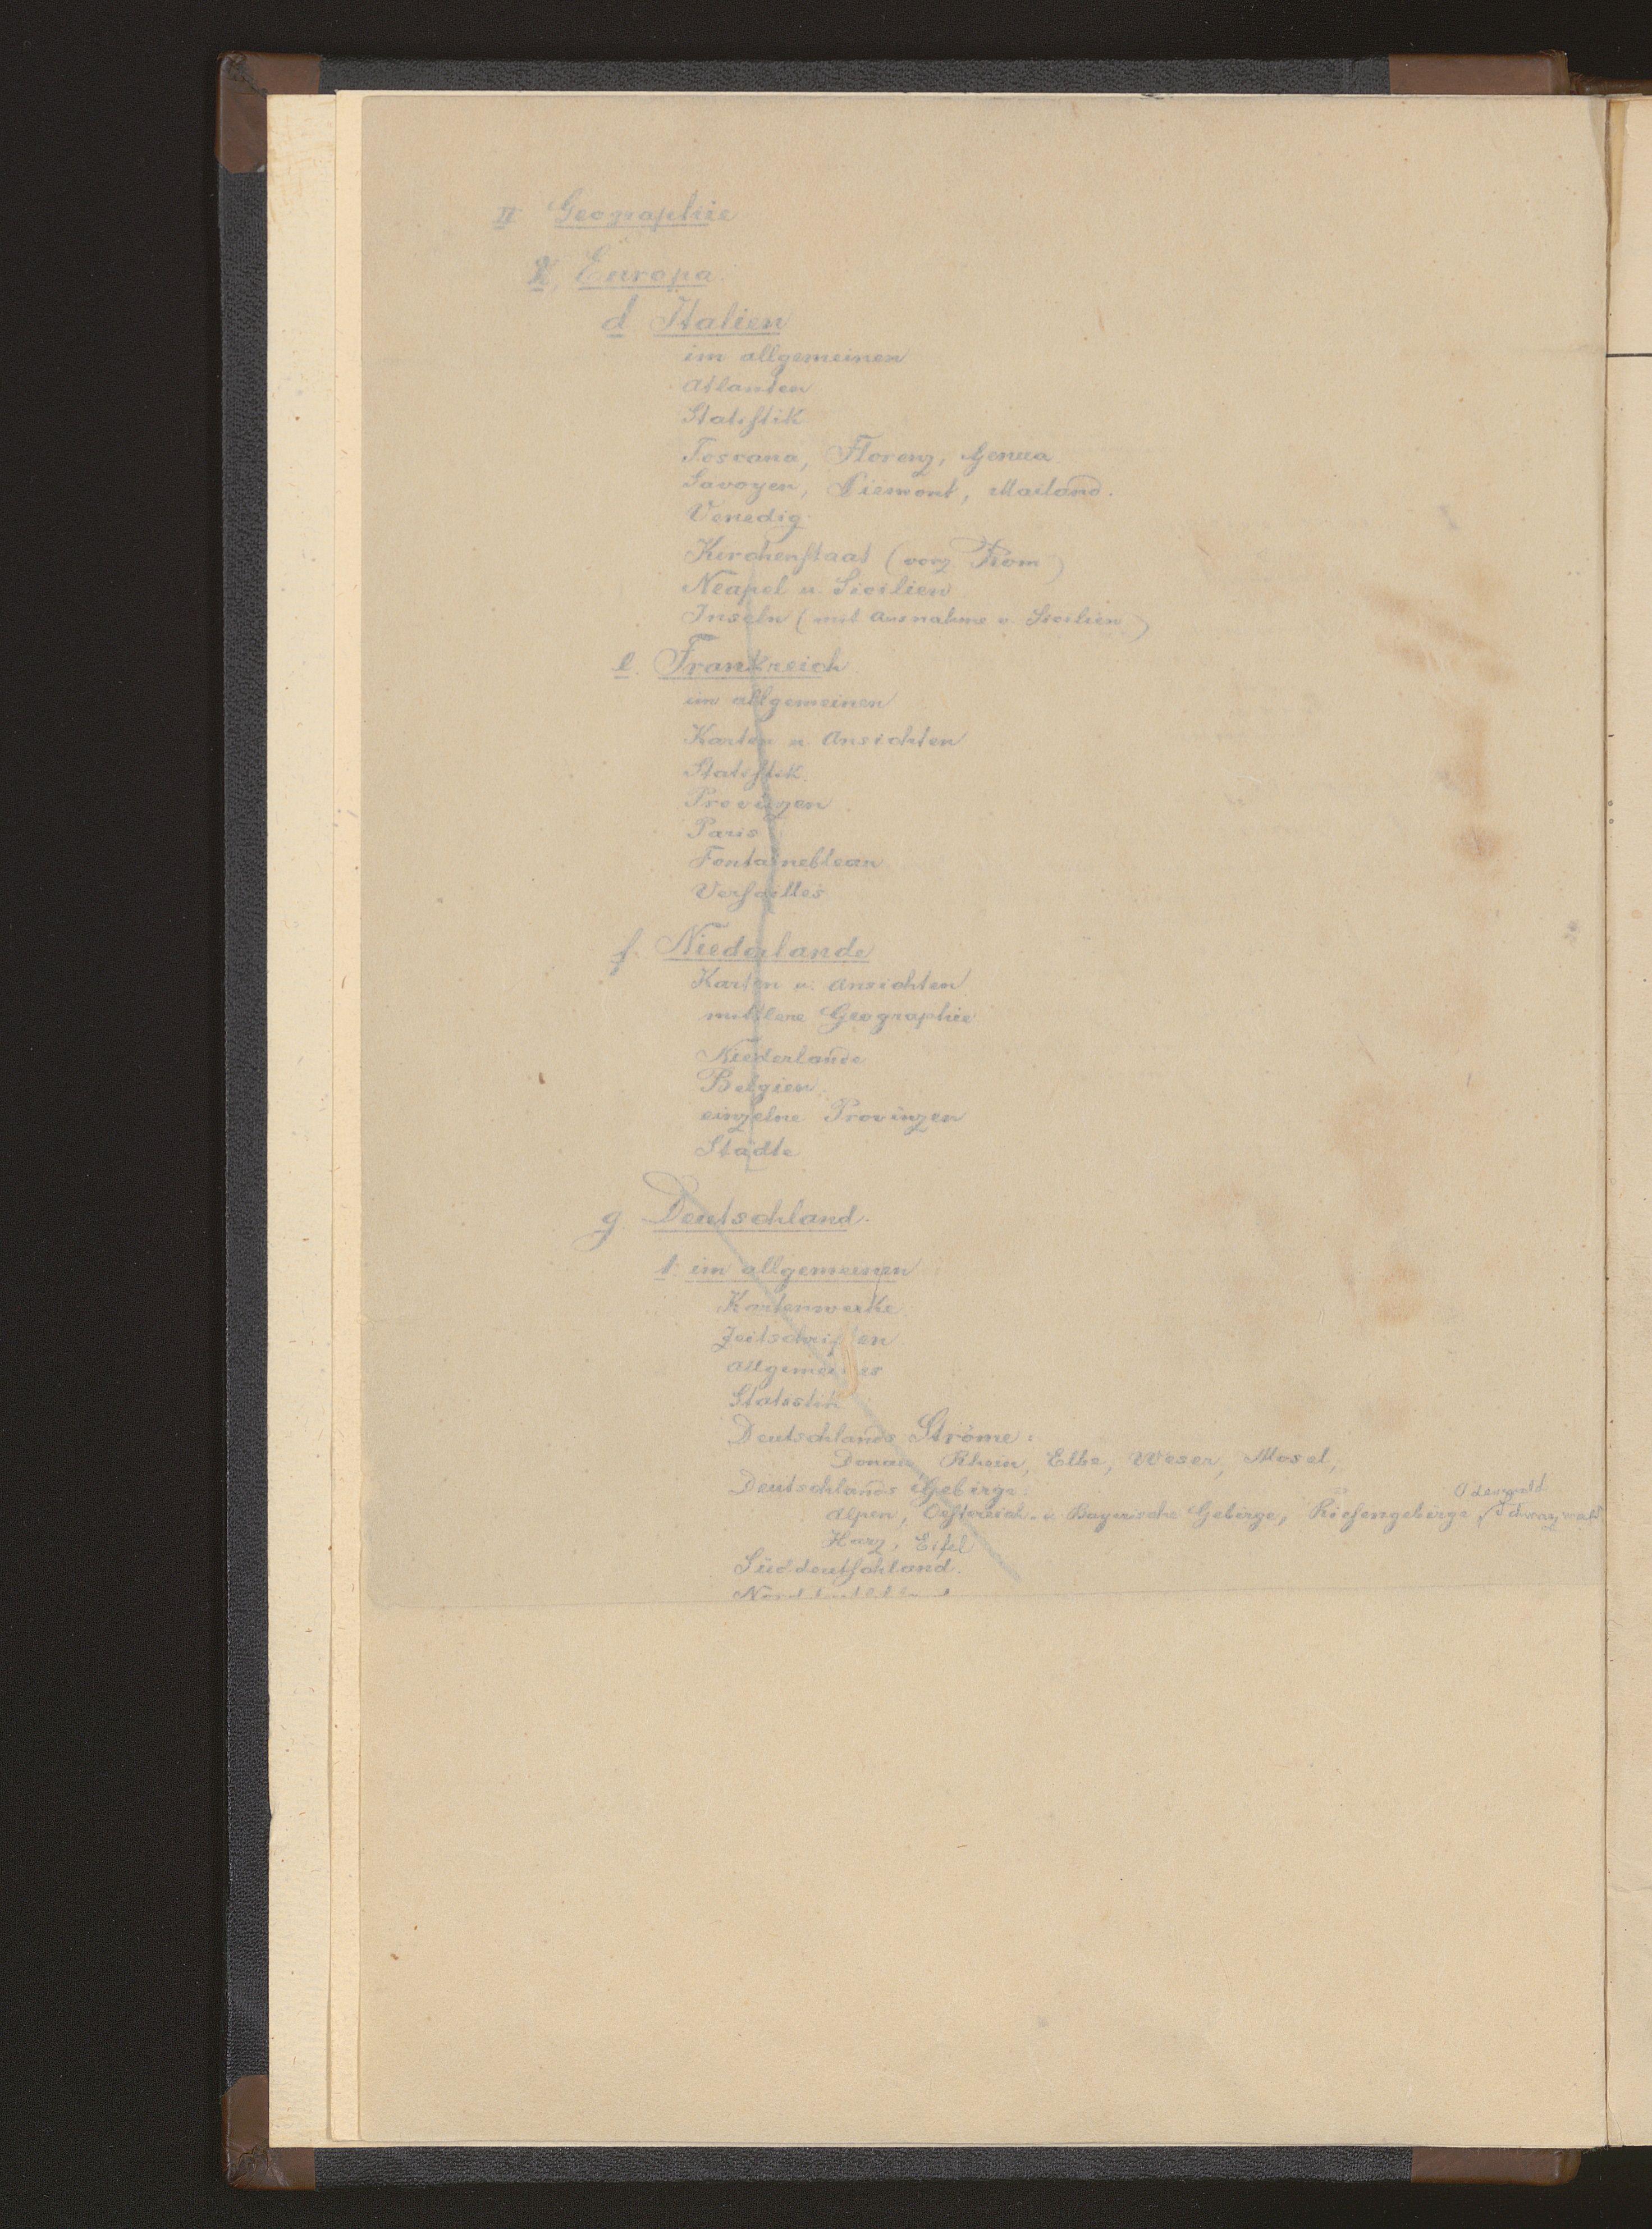 II Geographie
Europa.
d Italien
im allgemeinen
Atlanten
Statistik
Toscana, Florenz, Genua
Savoyen, Piemont, Mailand.
Venedig
Kirchenstaat (vorz. Rom)
Neapel u. Sicilien
Inseln (mit Ausnahme v. Sicilien)
e. Frankreich.
im allgemeinen
Karten u. Ansichten
Statistik.
Provinzen.
Paris
Fontainebleau
Versailles
f. Niederlande
Karten u. Ansichten
mittlere Geographie
Niederlande
Belgien.
einzelne Provinzen
Städte
g Deutschland.
1. im allgemeinen
Kartenwerke
Zeitschriften
Allgemeines
Statistik
Deutschlands Ströme:
Donau, Rhein, Elbe, Weser, Mosel,
Deutschlands Gebirge.
Odenwald
Alpen, Oestereich- u. Bayerische Gebirge, Riesengebirge, Schwarzwald
Harz, Eifel
Süddeutschland.